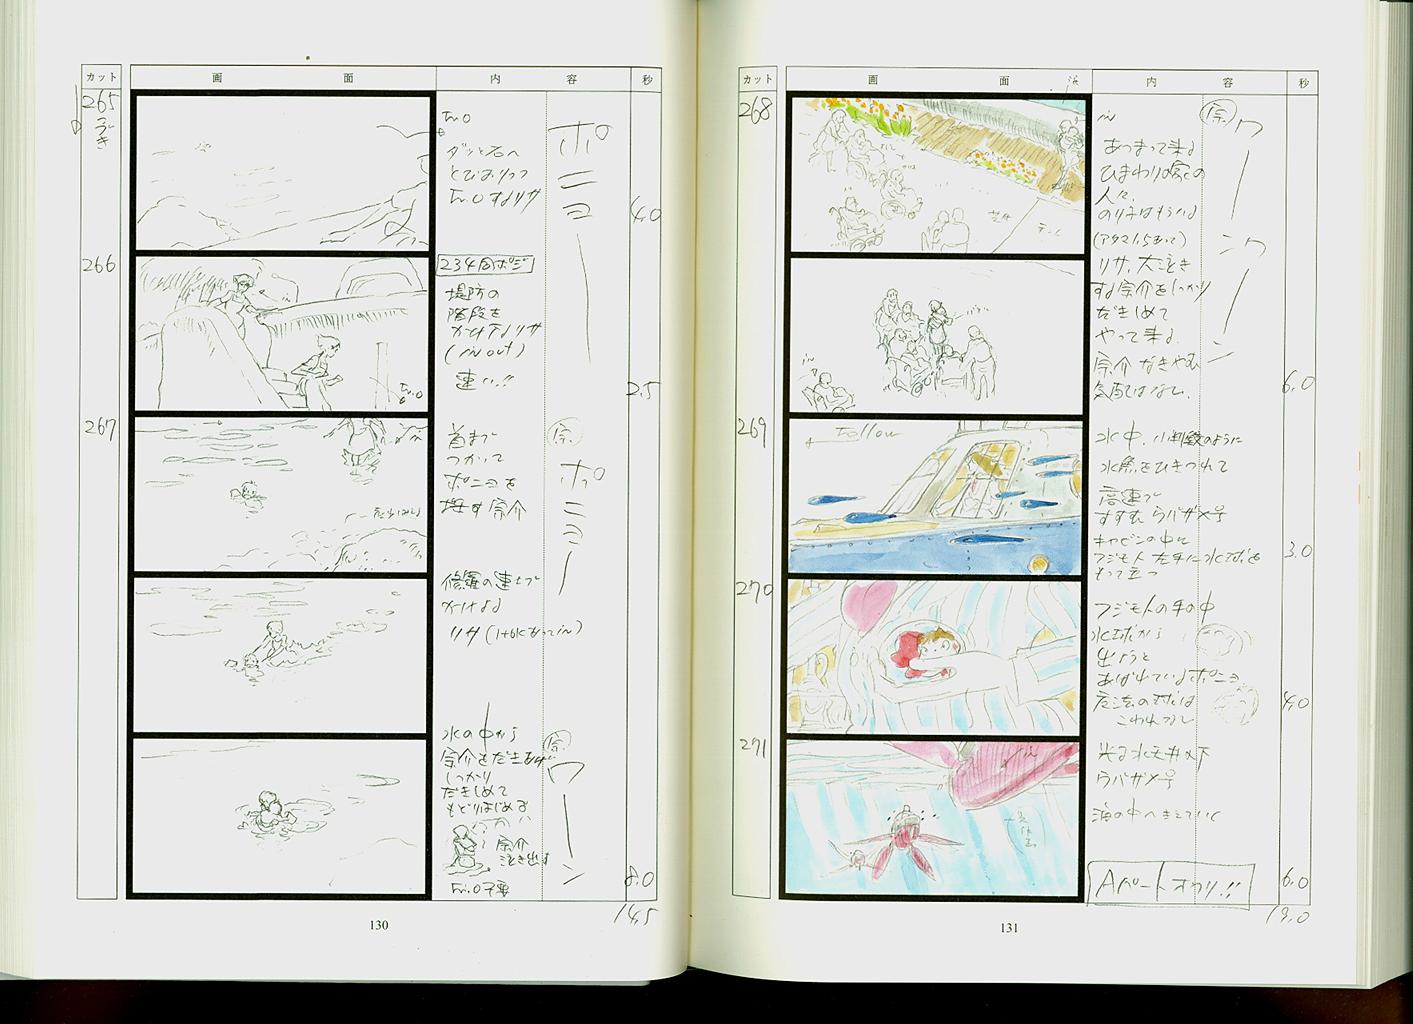 カット
画 面
内 容
秒
265
つづき
Fr.O
ダッと石へ
とびおりって
Fr.OするリサI
ポニョー
4.0
266
234回ポジ
堤防の
階段を
かけ下るリサ
(in out)
速い!!
Fr.O
2.5
267
首まで
つかって
ポニョを
捜す宗介
宗
ポニョー
修羅の速さで
かけよる
リサ(1+6Kになってin)
水の中から
宗介をだきあげ
しっかり
だきしめて
もどりはじめる
宗
ワーーン
宗介
泣き出す
8.0
14.5
130
カット
画 面
内 容
秒
268
in
あつまって来る
ひまわりの家の
人々、
リサ、大泣き
する宗介をしっかり
だきしめて
やって来る
宗介 なきやむ
気配はない、
宗
ワーンワーン
6.0
269
Follow
水中、小判鮫のように
水魚をひきつれて
高速で
すすむウバザメ号
キャビンの中に
フジモト左手に水球を
もって立つ
3.0
270
フジモトの手の中
水球から
出ようと
あばれているポニョ
魔法の球は
こわれない
4.0
271
光る水天井の下
ウバザメ号
海の中へきえていく
Aパート オワリ!!
6.0
19.0
131